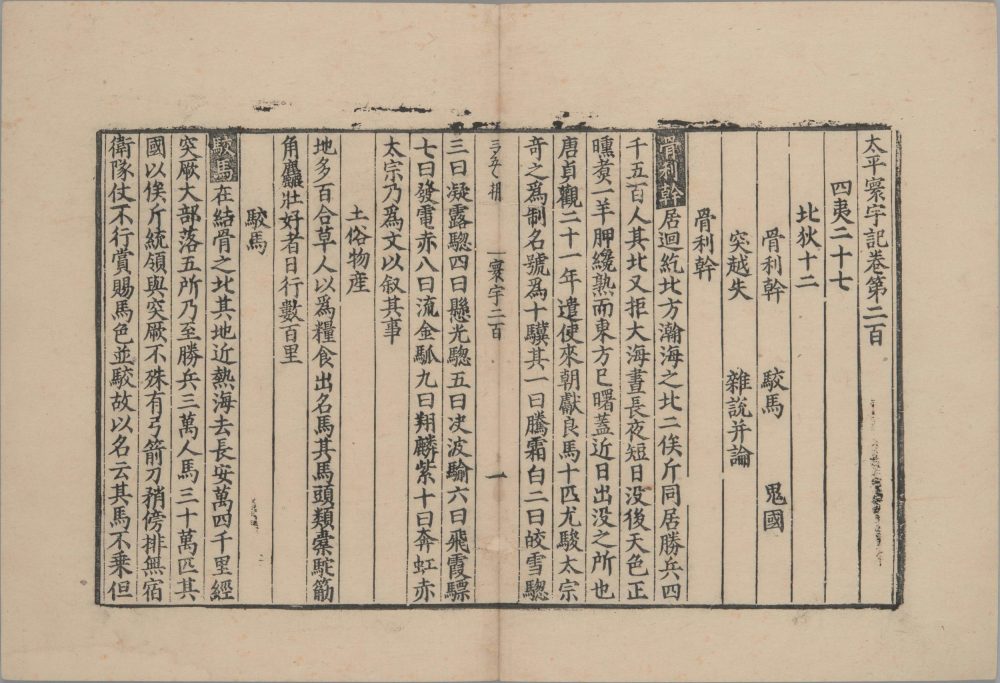 太平寰宇記卷第二百
四夷二十七
北狄十二
骨利幹 駮馬 鬼國
突越失 雜說并論
骨利幹
骨利幹居迴紇北方瀚海之北二俟斤同居勝兵四
千五百人其北又拒大海晝長夜短日没後天色正
曛煑一羊胛纔熟而東方巳曙蓋近日出没之所也
唐貞觀二十一年遣使來朝獻良馬十匹尤駿太宗
奇之爲制名號爲十驥其一曰騰霜白二曰皎雪驄
寰宇二百 一
三曰凝露驄四曰懸光驄五曰决波騟六曰飛霞驃
七曰發電赤八曰流金䯄九曰翔麟紫十曰奔虹赤
太宗乃爲文以叙其事
土俗物産
地多百合草人以爲糧食出名馬其馬頭類橐駝筋
角麤壯好者日行數百里
駮馬
駮馬在結骨之北其地近熱海去長安萬四千里經
突厥大部落五所乃至勝兵三萬人馬三十萬匹其
國以俟斤統領與突厥不殊有弓箭刀矟傍排無宿
衛隊仗不行賞賜馬色並駮故以名云其馬不乗但